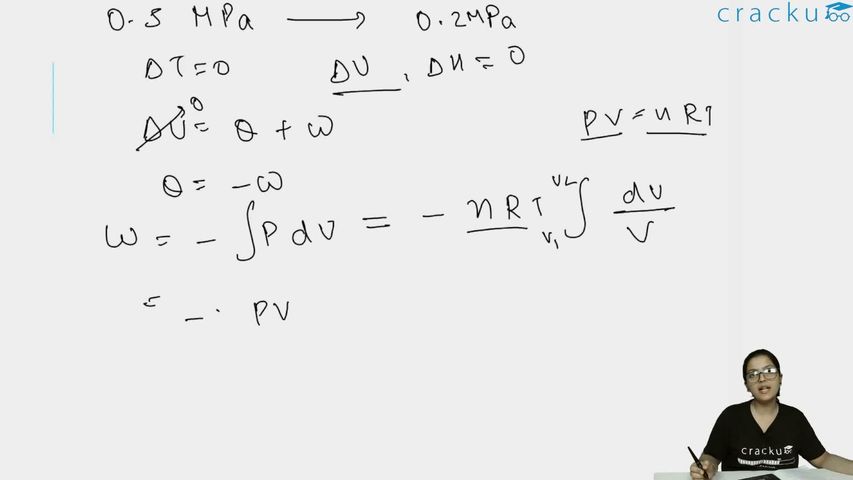 cracku
0.5 MPa ⟶ 0.2MPa
ΔT=0 ΔU, ΔH = 0
ΔU⁰= Q + W
PV = nRT
Q = -W
W = - ∫ P dV = - nRT V₁∫V₂ dV/V
= - . PV
cracku